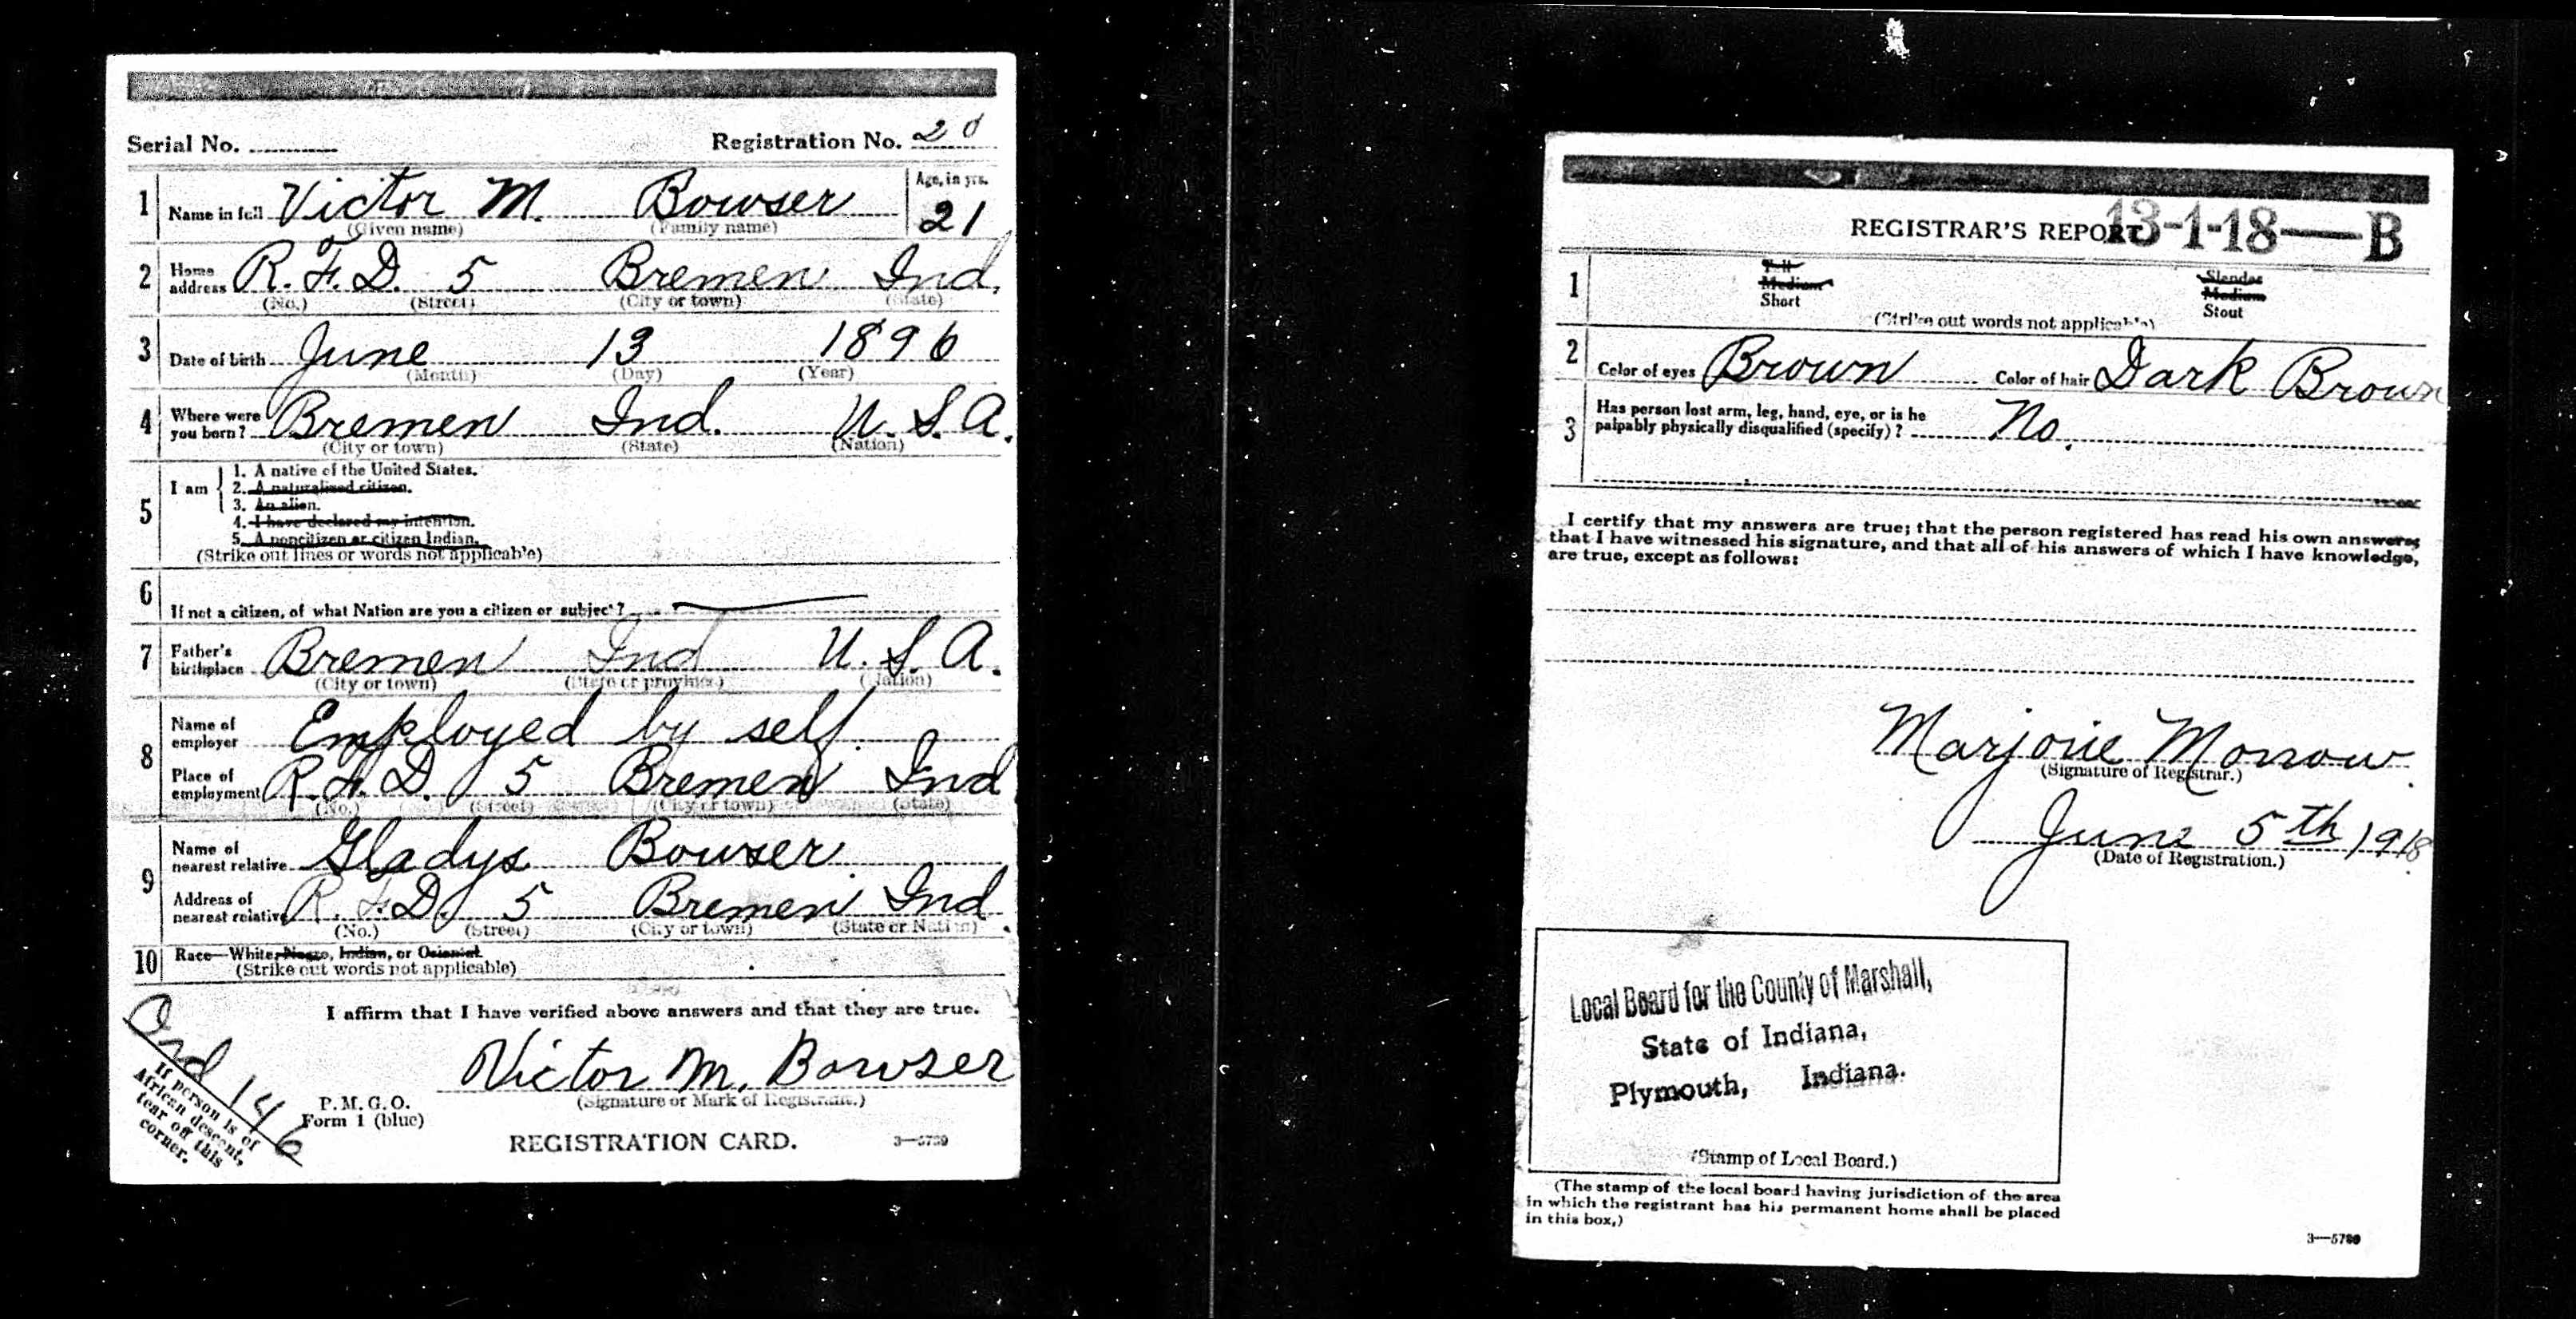 Serial No. Registration No. 20
1 Name in full Victor M. Bowser Age, in yrs. 21
(Given name) (Family name)
2 Home address R. F. D. 5 Bremen Ind.
(No.) (Street) (City or town) (State)
3 Date of birth June 13 1896
(Month) (Day) (Year)
4 Where were you born? Bremen Ind. U. S. A.
(City or town) (State) (Nation)
5 I am
1. A native of the United States.
2. A naturalized citizen.
3. An alien.
4. I have declared my intention.
5. A noncitizen or citizen Indian.
(Strike out lines or words not applicable)
6 If not a citizen, of what Nation are you a citizen or subject?
7 Father's birthplace Bremen Ind U. S. A.
(City or town) (State or province) (Nation)
8 Name of employer Employed by self.
Place of employment R. F. D. 5 Bremen Ind
(No.) (Street) (City or town) (State)
9 Name of nearest relative Gladys Bowser
Address of nearest relative R. F. D. 5 Bremen Ind
(No.) (Street) (City or town) (State or Nation)
10 Race—White, Negro, Indian, or Oriental.
(Strike out words not applicable)
I affirm that I have verified above answers and that they are true.
Victor M. Bowser
(Signature or Mark of Registrant.)
Ord 146
If person is of
African descent,
tear off this
corner.
P. M. G. O.
Form 1 (blue)
REGISTRATION CARD.
3—5789
REGISTRAR'S REPORT 13-1-18—B
1 Tall Slender
Medium Medium
Short Stout
(Strike out words not applicable)
2 Color of eyes Brown Color of hair Dark Brown
3 Has person lost arm, leg, hand, eye, or is he
palpably physically disqualified (specify)? No.
I certify that my answers are true; that the person registered has read his own answers;
that I have witnessed his signature, and that all of his answers of which I have knowledge,
are true, except as follows:
Marjorie Morrow.
(Signature of Registrar.)
June 5th 1918
(Date of Registration.)
Local Board for the County of Marshall,
State of Indiana,
Plymouth, Indiana.
(Stamp of Local Board.)
(The stamp of the local board having jurisdiction of the area
in which the registrant has his permanent home shall be placed
in this box,)
3—5789